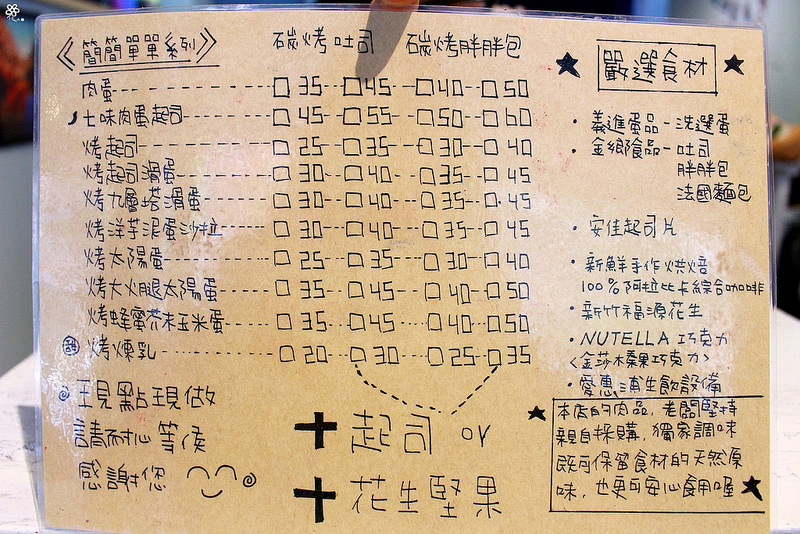 《簡簡單單系列》 碳烤吐司 碳烤胖胖包
肉蛋 □35 □45 □40 □50
七味肉蛋起司 □45 □55 □50 □60
烤起司 □25 □35 □30 □40
烤起司滑蛋 □30 □40 □35 □45
烤九層塔滑蛋 □30 □40 □35 □45
烤洋芋泥蛋沙拉 □30 □40 □35 □45
烤太陽蛋 □25 □35 □30 □40
烤大火腿太陽蛋 □35 □45 □40 □50
烤蜂蜜芥末玉米蛋 □35 □45 □40 □50
烤煉乳 □20 □30 □25 □35
現點現做
請耐心等侯
感謝您
+起司 or
+花生堅果
★嚴選食材★
·義進蛋品-洗選蛋
·金鄉食品-吐司
胖胖包
法國麵包
·安佳起司片
·新鮮手作烘焙
100%阿拉比卡綜合咖啡
·新竹福源花生
·NUTELLA巧克力
<金莎木榛果巧克力>
·愛惠浦生飲設備
★本店的肉品,老闆堅持
親自採購,獨家調味
既可保留食材的天然原
味,也更可安心食用喔★